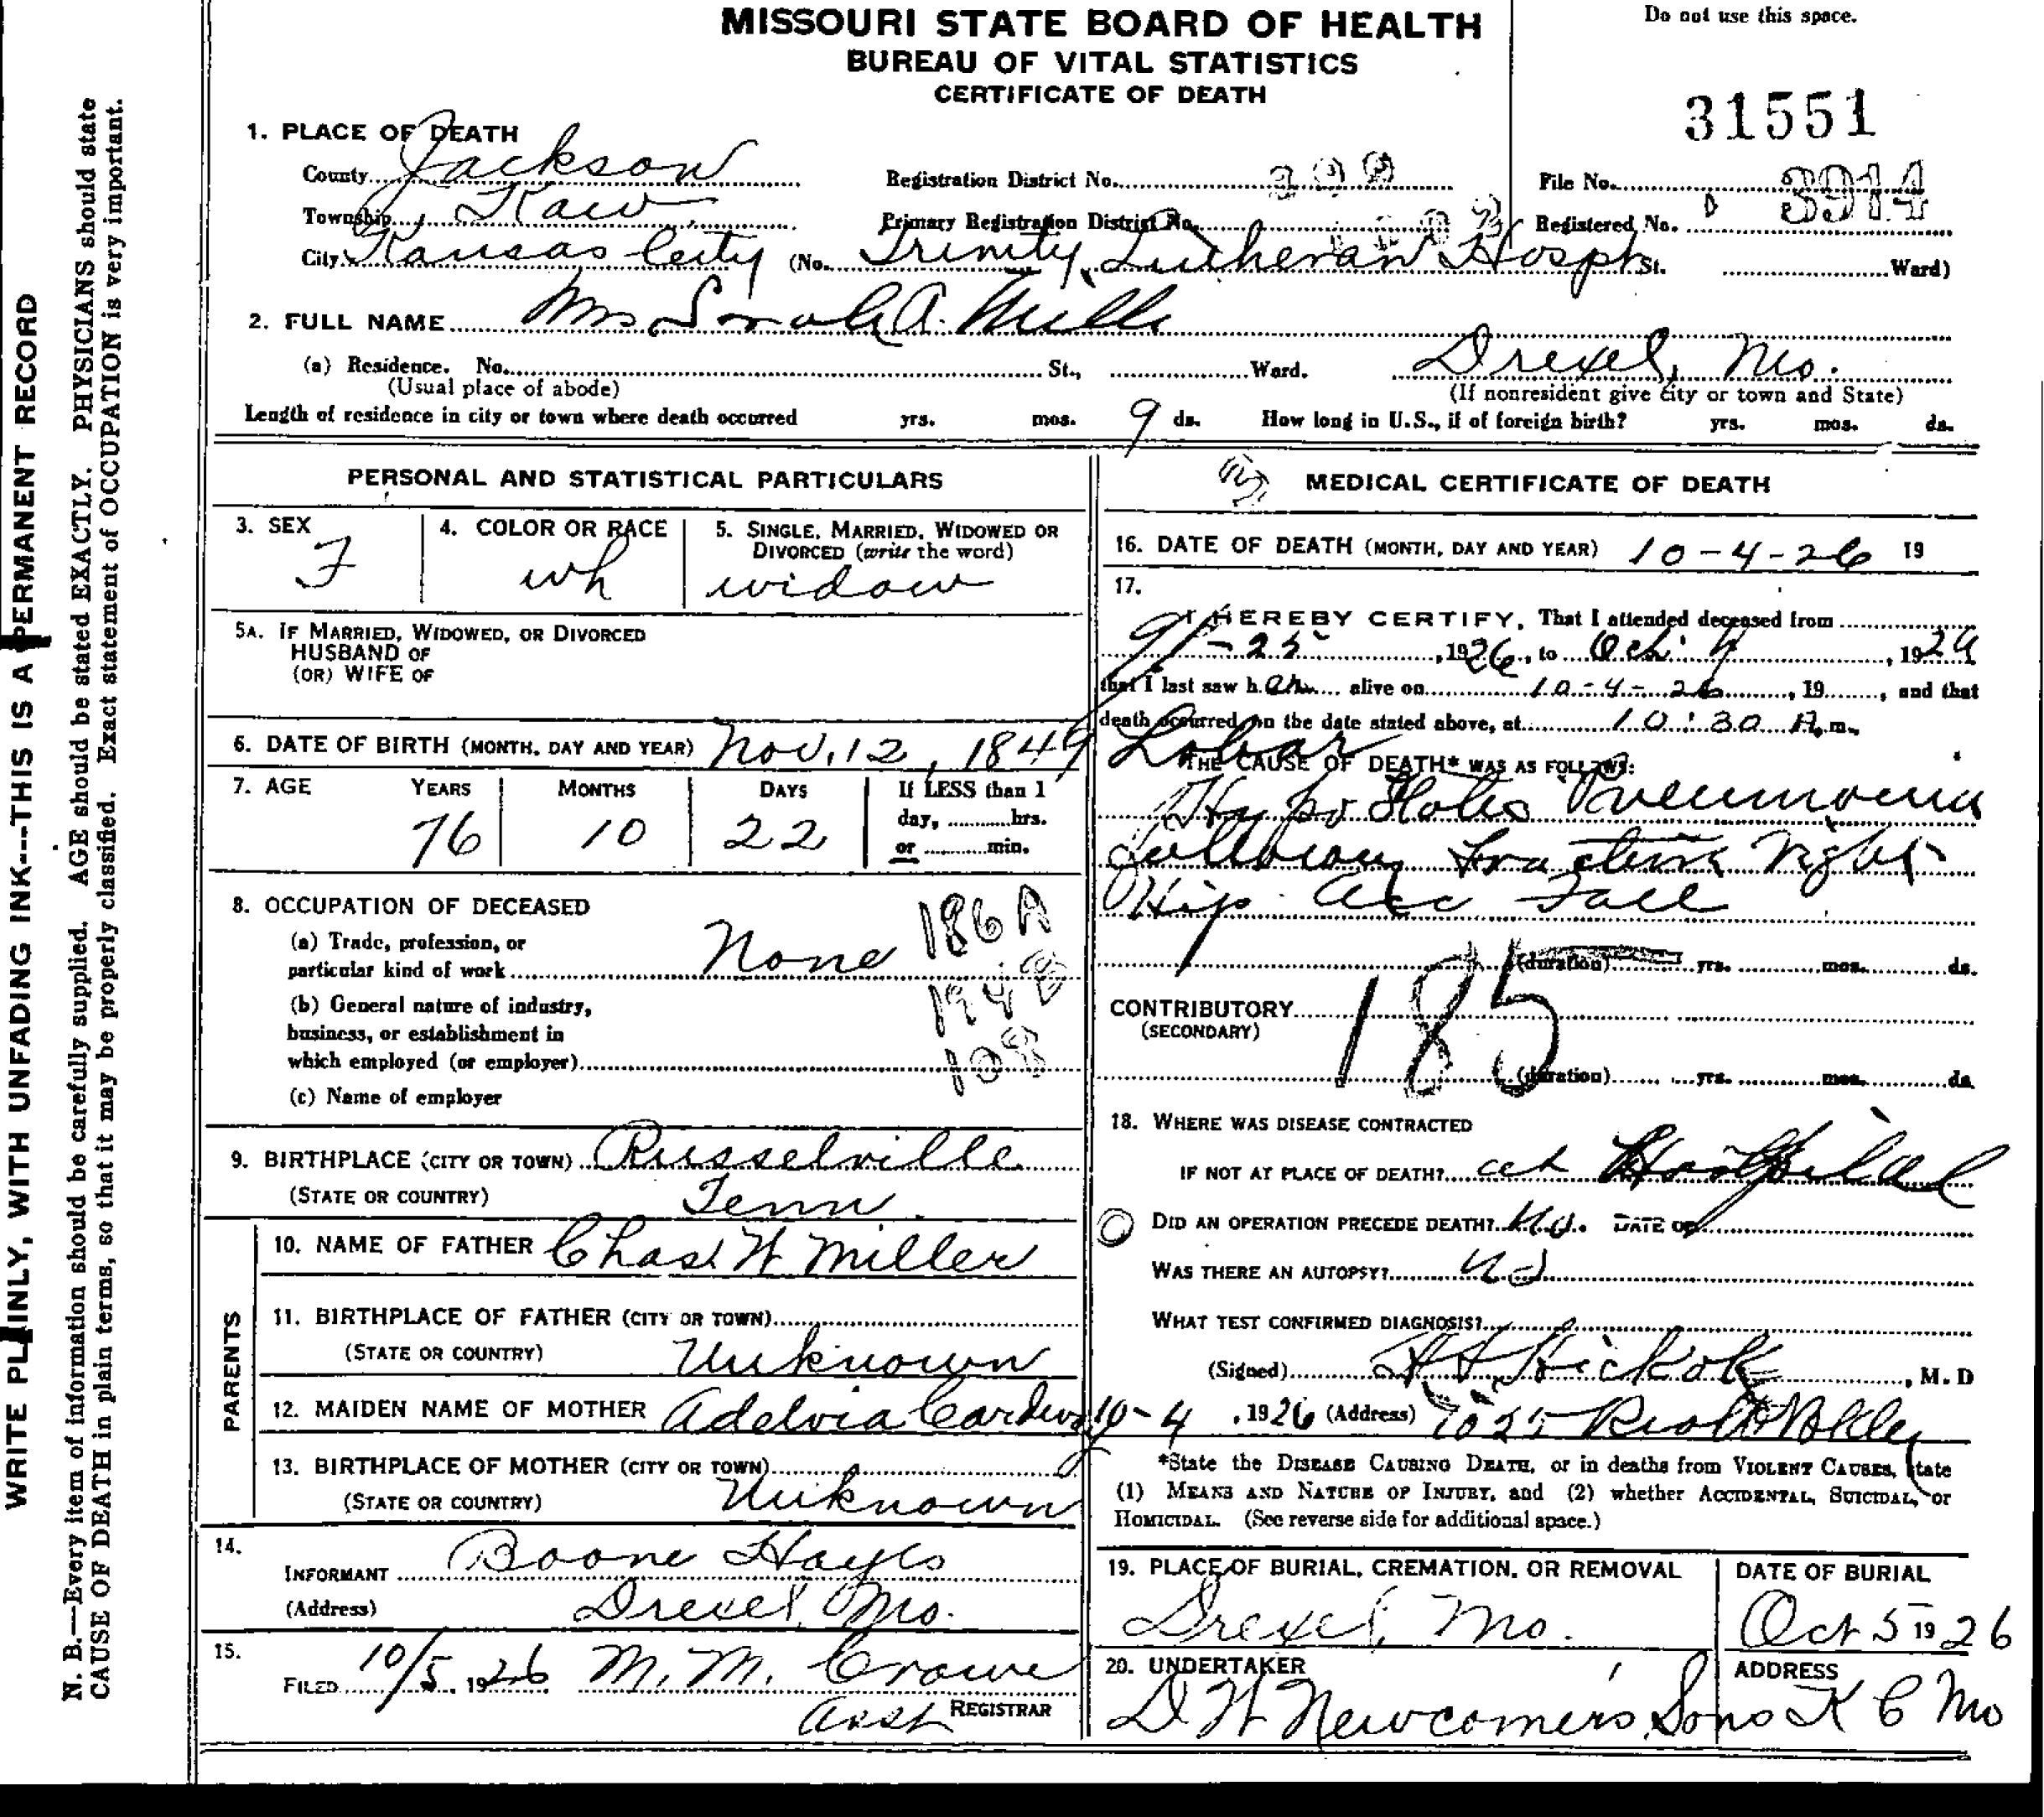 MISSOURI STATE BOARD OF HEALTH
BUREAU OF VITAL STATISTICS
CERTIFICATE OF DEATH
Do not use this space.
31551
1. PLACE OF DEATH
County Jackson
Registration District No. 399
File No. 3914
Township Kaw
Primary Registration District No.
Registered No.
City Kansas City (No. Trinity Lutheran Hospt St. Ward)
2. FULL NAME Mrs Sarah A. Mills
(a) Residence. No. St., Ward. Drexel, Mo.
(Usual place of abode) (If nonresident give city or town and State)
Length of residence in city or town where death occurred yrs. mos. 9 ds. How long in U.S., if of foreign birth? yrs. mos. ds.
PERSONAL AND STATISTICAL PARTICULARS
3. SEX
F
4. COLOR OR RACE
wh
5. SINGLE, MARRIED, WIDOWED OR
DIVORCED (write the word)
widow
5A. IF MARRIED, WIDOWED, OR DIVORCED
HUSBAND OF
(OR) WIFE OF
6. DATE OF BIRTH (MONTH, DAY AND YEAR) Nov. 12, 1849
7. AGE YEARS MONTHS DAYS If LESS than 1
day, hrs.
or min.
76 10 22
8. OCCUPATION OF DECEASED
186A
(a) Trade, profession, or
particular kind of work None
194B
(b) General nature of industry,
business, or establishment in
which employed (or employer)
108
(c) Name of employer
9. BIRTHPLACE (CITY OR TOWN) Russelville
(STATE OR COUNTRY) Tenn.
PARENTS
10. NAME OF FATHER Chas. W Miller
11. BIRTHPLACE OF FATHER (CITY OR TOWN)
(STATE OR COUNTRY) Unknown
12. MAIDEN NAME OF MOTHER Adelvia
13. BIRTHPLACE OF MOTHER (CITY OR TOWN)
(STATE OR COUNTRY) Unknown
14.
INFORMANT Boone Hayes
(Address) Drexel, Mo.
15.
FILED 10/5, 1926 M. M. Crowe
Asst REGISTRAR
MEDICAL CERTIFICATE OF DEATH
16. DATE OF DEATH (MONTH, DAY AND YEAR) 10-4-26 19
17.
I HEREBY CERTIFY, That I attended deceased from
9-25, 1926, to Oct. 4, 1926
that I last saw her alive on 10-4-26, 19, and that
death occurred on the date stated above, at 10:30 A.m.
Lobar
THE CAUSE OF DEATH* WAS AS FOLLOWS:
Pneumonia
following fracture right
Hip acc Fall
(duration) yrs. mos. ds.
CONTRIBUTORY
(SECONDARY)
185
(duration) yrs. mos. ds.
18. WHERE WAS DISEASE CONTRACTED
IF NOT AT PLACE OF DEATH? at Hospital
DID AN OPERATION PRECEDE DEATH? No. DATE OF
WAS THERE AN AUTOPSY? No
WHAT TEST CONFIRMED DIAGNOSIS?
(Signed) Hickok, M. D
10-4, 1926 (Address) 1025 Rialto Bldg
*State the DISEASE CAUSING DEATH, or in deaths from VIOLENT CAUSES, state
(1) MEANS AND NATURE OF INJURY, and (2) whether ACCIDENTAL, SUICIDAL, or
HOMICIDAL. (See reverse side for additional space.)
19. PLACE OF BURIAL, CREMATION, OR REMOVAL
Drexel, Mo.
DATE OF BURIAL
Oct 5 1926
20. UNDERTAKER
D W Newcomer's Sons
ADDRESS
K C Mo
WRITE PLAINLY, WITH UNFADING INK---THIS IS A PERMANENT RECORD
N. B.—Every item of information should be carefully supplied. AGE should be stated EXACTLY. PHYSICIANS should state
CAUSE OF DEATH in plain terms, so that it may be properly classified. Exact statement of OCCUPATION is very important.